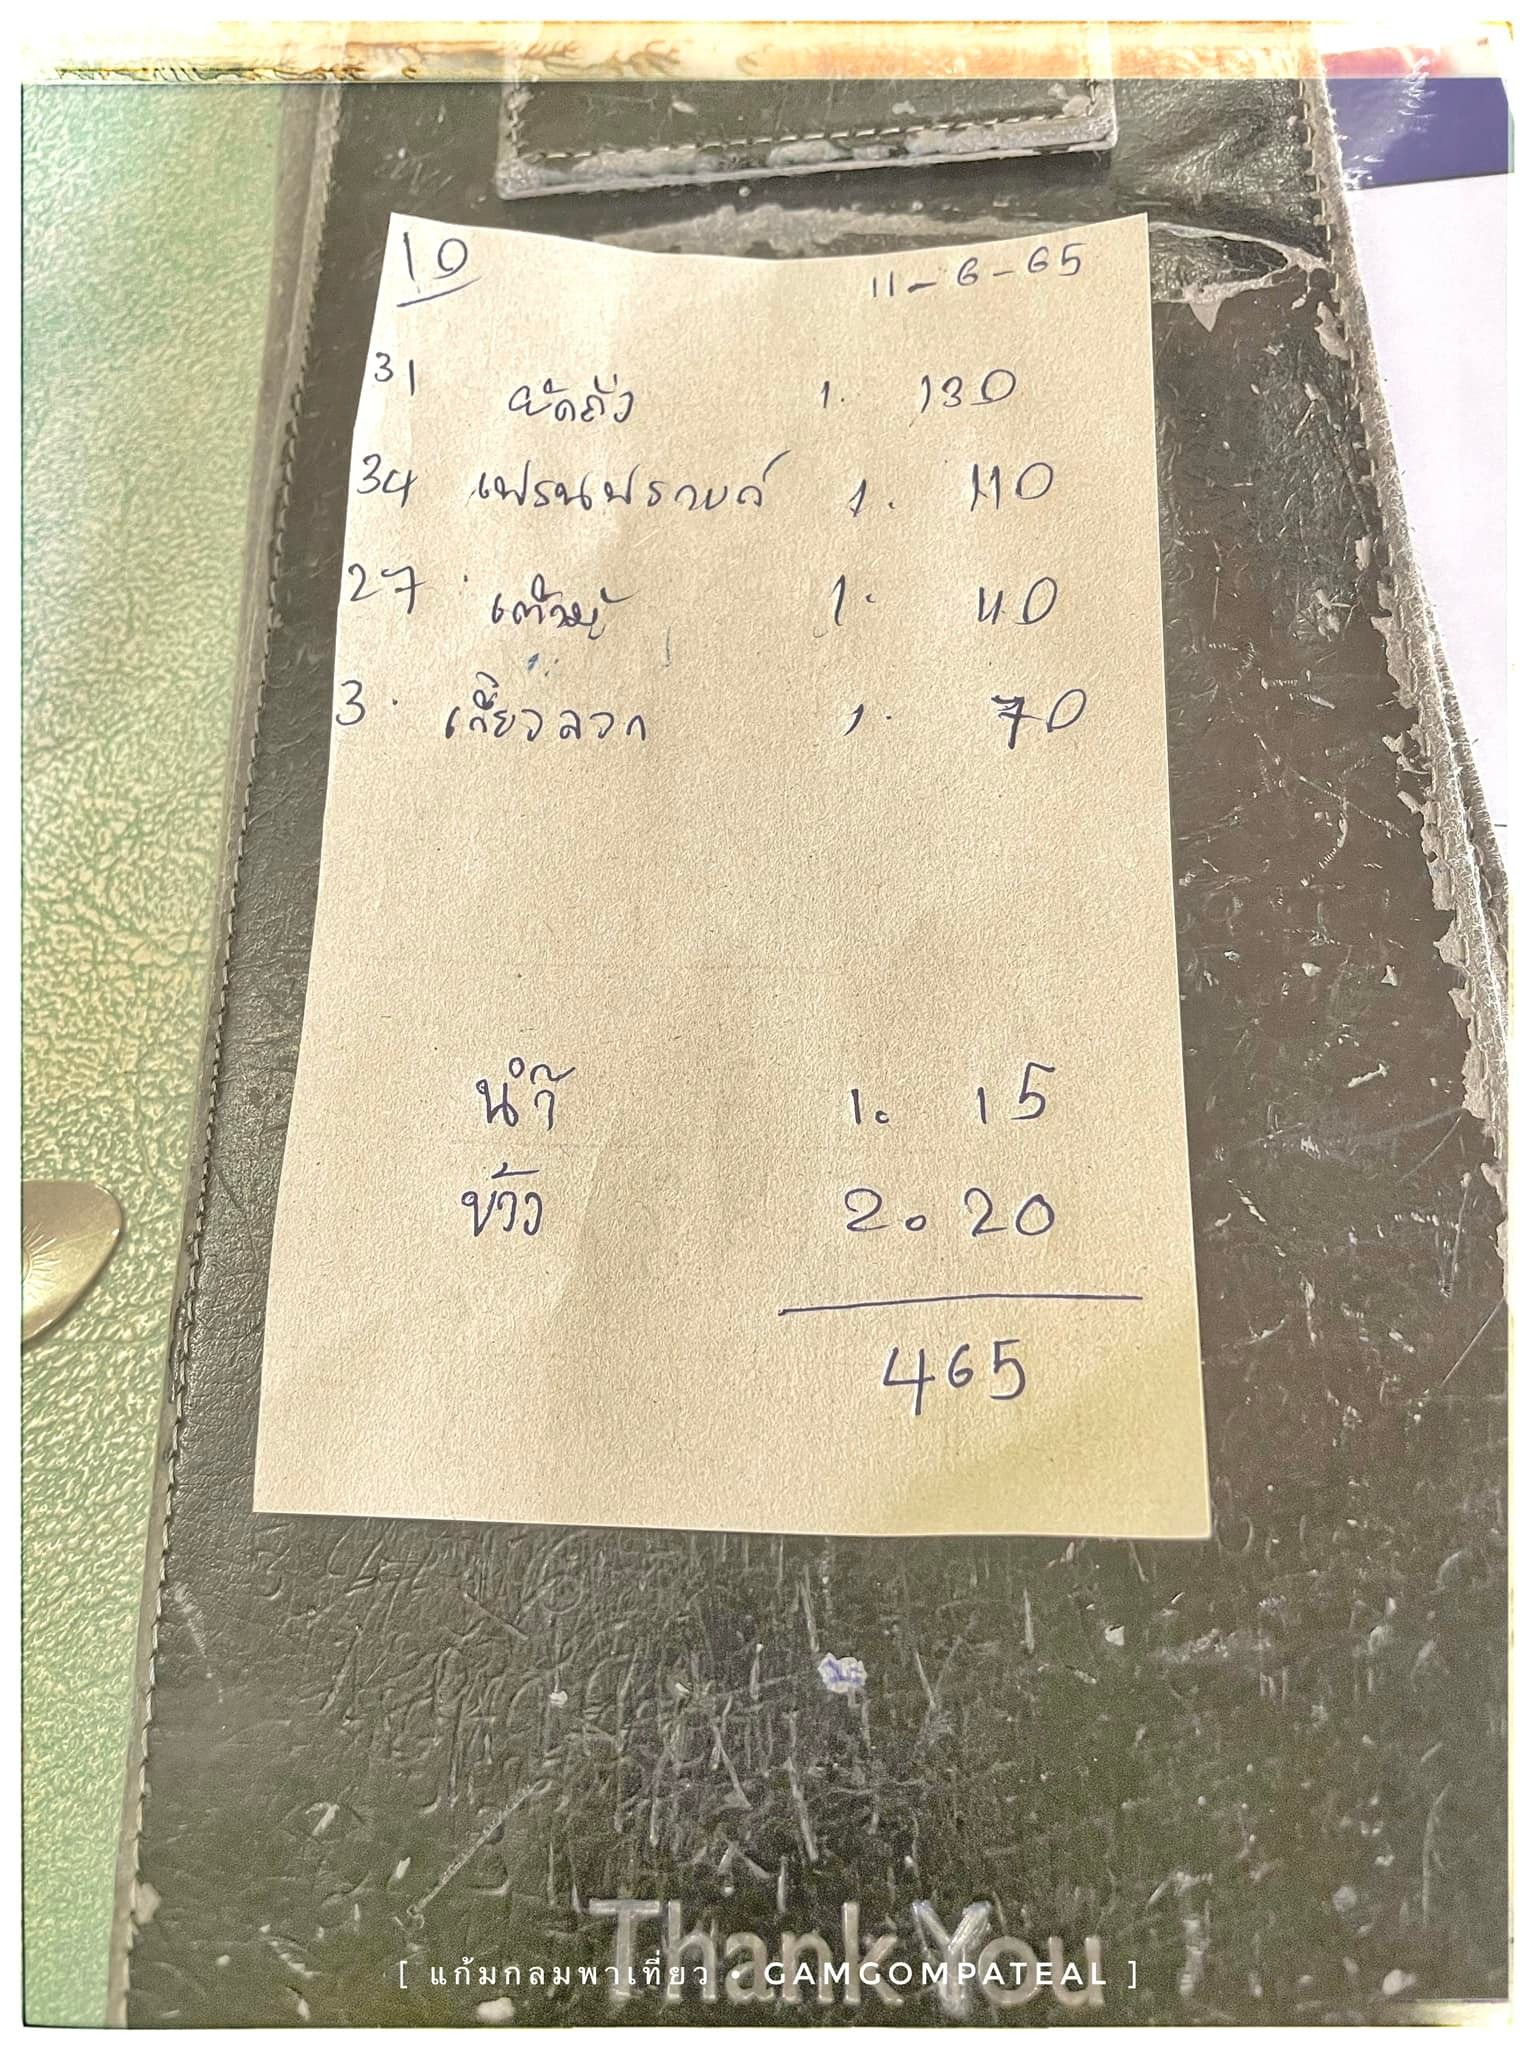 10
11-6-65
31 ผัดถั่ว 1. 130
34 เฟรนฟรายด์ 1. 110
27 1.
3. เกี๊ยวลวก 1. 70
น้ำ 1. 15
ข้าว 2. 20
465
Thank You
[ แก้มกลมพาเที่ยว • GAMGOMPATEAL ]